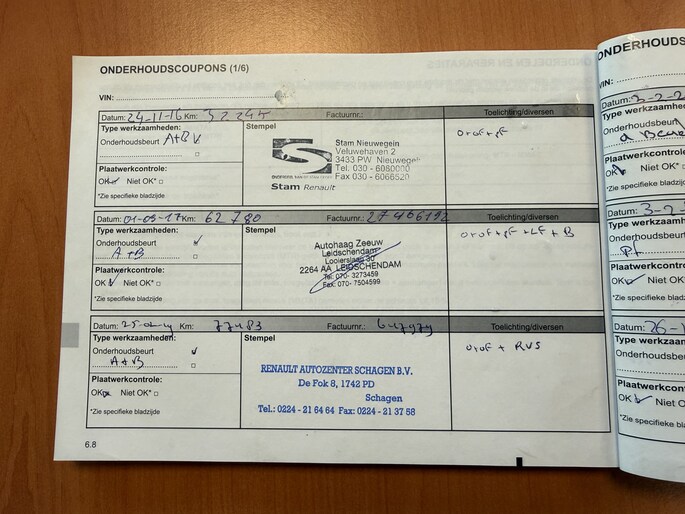 ONDERHOUDSCOUPONS (1/6)
VIN:
Datum: 24-11-16 Km: Factuurnr.: Toelichting/diversen
Type werkzaamheden: Stempel
Onderhoudsbeurt A+B V
Stam Nieuwegein
Veluwehaven 2
3433 PW Nieuwegein
Tel. 030 - 6080000
Fax 030 - 6066520
Stam Renault
Plaatwerkcontrole:
OK Niet OK*
*Zie specifieke bladzijde
Datum: 01-09-17 Km: 62780 Factuurnr.: 27466192 Toelichting/diversen
Type werkzaamheden: Stempel
Onderhoudsbeurt
A+B
Autohaag Zeeuw
Leidschendam
Looierslaan 30
2264 AA LEIDSCHENDAM
Tel: 070- 3273459
Fax: 070- 7504599
Plaatwerkcontrole:
OK Niet OK*
*Zie specifieke bladzijde
Datum: Km: 77483 Factuurnr.: Toelichting/diversen
Type werkzaamheden: Stempel
Onderhoudsbeurt
A+B
RENAULT AUTOZENTER SCHAGEN B.V.
De Fok 8, 1742 PD
Schagen
Tel.: 0224 - 21 64 64 Fax: 0224 - 21 37 58
Plaatwerkcontrole:
OK Niet OK*
*Zie specifieke bladzijde
6.8
ONDERHOUDS
VIN:
Datum:
Type werkzaam
Onderhoudsbeurt
Plaatwerkcontro
OK Niet O
*Zie specifieke bla
Datum:
Type werkzaam
Onderhoudsbeu
Plaatwerkcont
OK Niet
*Zie specifieke b
Datum:
Type werkzaar
Onderhoudsbe
Plaatwerkcon
OK Niet